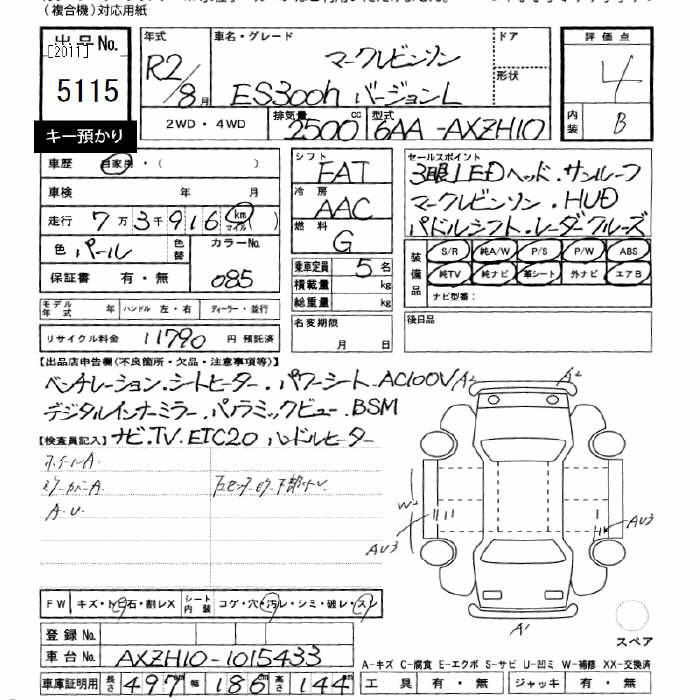 (複合機)対応用紙
出品No.
[2011]
5115
キー預かり
年式 R2/8月
車名・グレード マークレビンソン
ES300h バージョンL
ドア
形状
評価点 4
内装 B
2WD・4WD
排気量 2500cc
型式 6AA-AXZH10
車歴 自家用・( )
車検 年 月
走行 7万3千916 km マイル )
色 パール
色替
カラーNo. 085
保証書 有・無
モデル年式 年 ハンドル 左・右 ディーラー・並行
リサイクル料金 11790 円 預託済
シフト FAT
冷房 AAC
燃料 G
乗車定員 5名
積載量 kg
総重量 kg
名変期限 月 日
セールスポイント
3眼LEDヘッド.サンルーフ
マークレビンソン.HUD
パドルシフト.レーダクルーズ
装備品
S/R 純A/W P/S P/W ABS
純TV 純ナビ 革シート 外ナビ エアB
ナビ型番:
後日品
【出品店申告欄(不良箇所・欠品・注意事項等)】
ベンチレーション.シートヒーター.パワーシート.AC100V
デジタルインナーミラー.パノラミックビュー.BSM
【検査員記入】ナビ.TV.ETC2.0 ハンドルヒーター
A.U
A2
A2
W2
AU3
AU3
A1
スペア
FW キズ・トビ石・割レX シート内装 コゲ・穴・汚レ・シミ・破レ・スレ
登録No.
車台No. AXZH10-1015433
車庫証明用 長さ 497 幅 186 高さ 144
A-キズ C-腐食 E-エクボ S-サビ U-凹ミ W-補修 XX-交換済
工具 有・無 ジャッキ 有・無